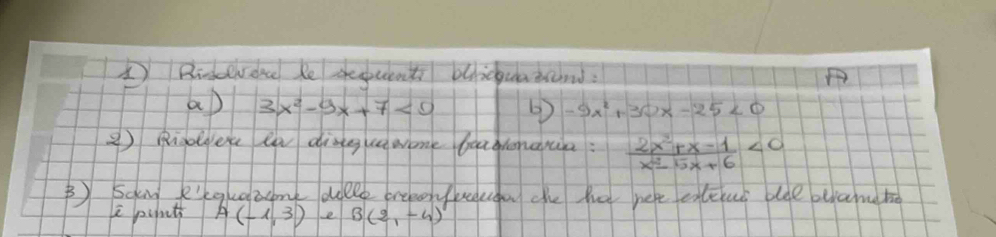 1) Risolvere le seguenti disequazioni: A
a) 3x² - 9x + 7 < 0 b) -9x² + 30x - 25 < 0
2) Risolvere la disequazione frazionaria: (2x² + x - 1)/(x² - 5x + 6) < 0
3) Scrivi l'equazione della circonferenza che ha per estremi del diametro
i punti A(-1, 3) e B(2, -4)